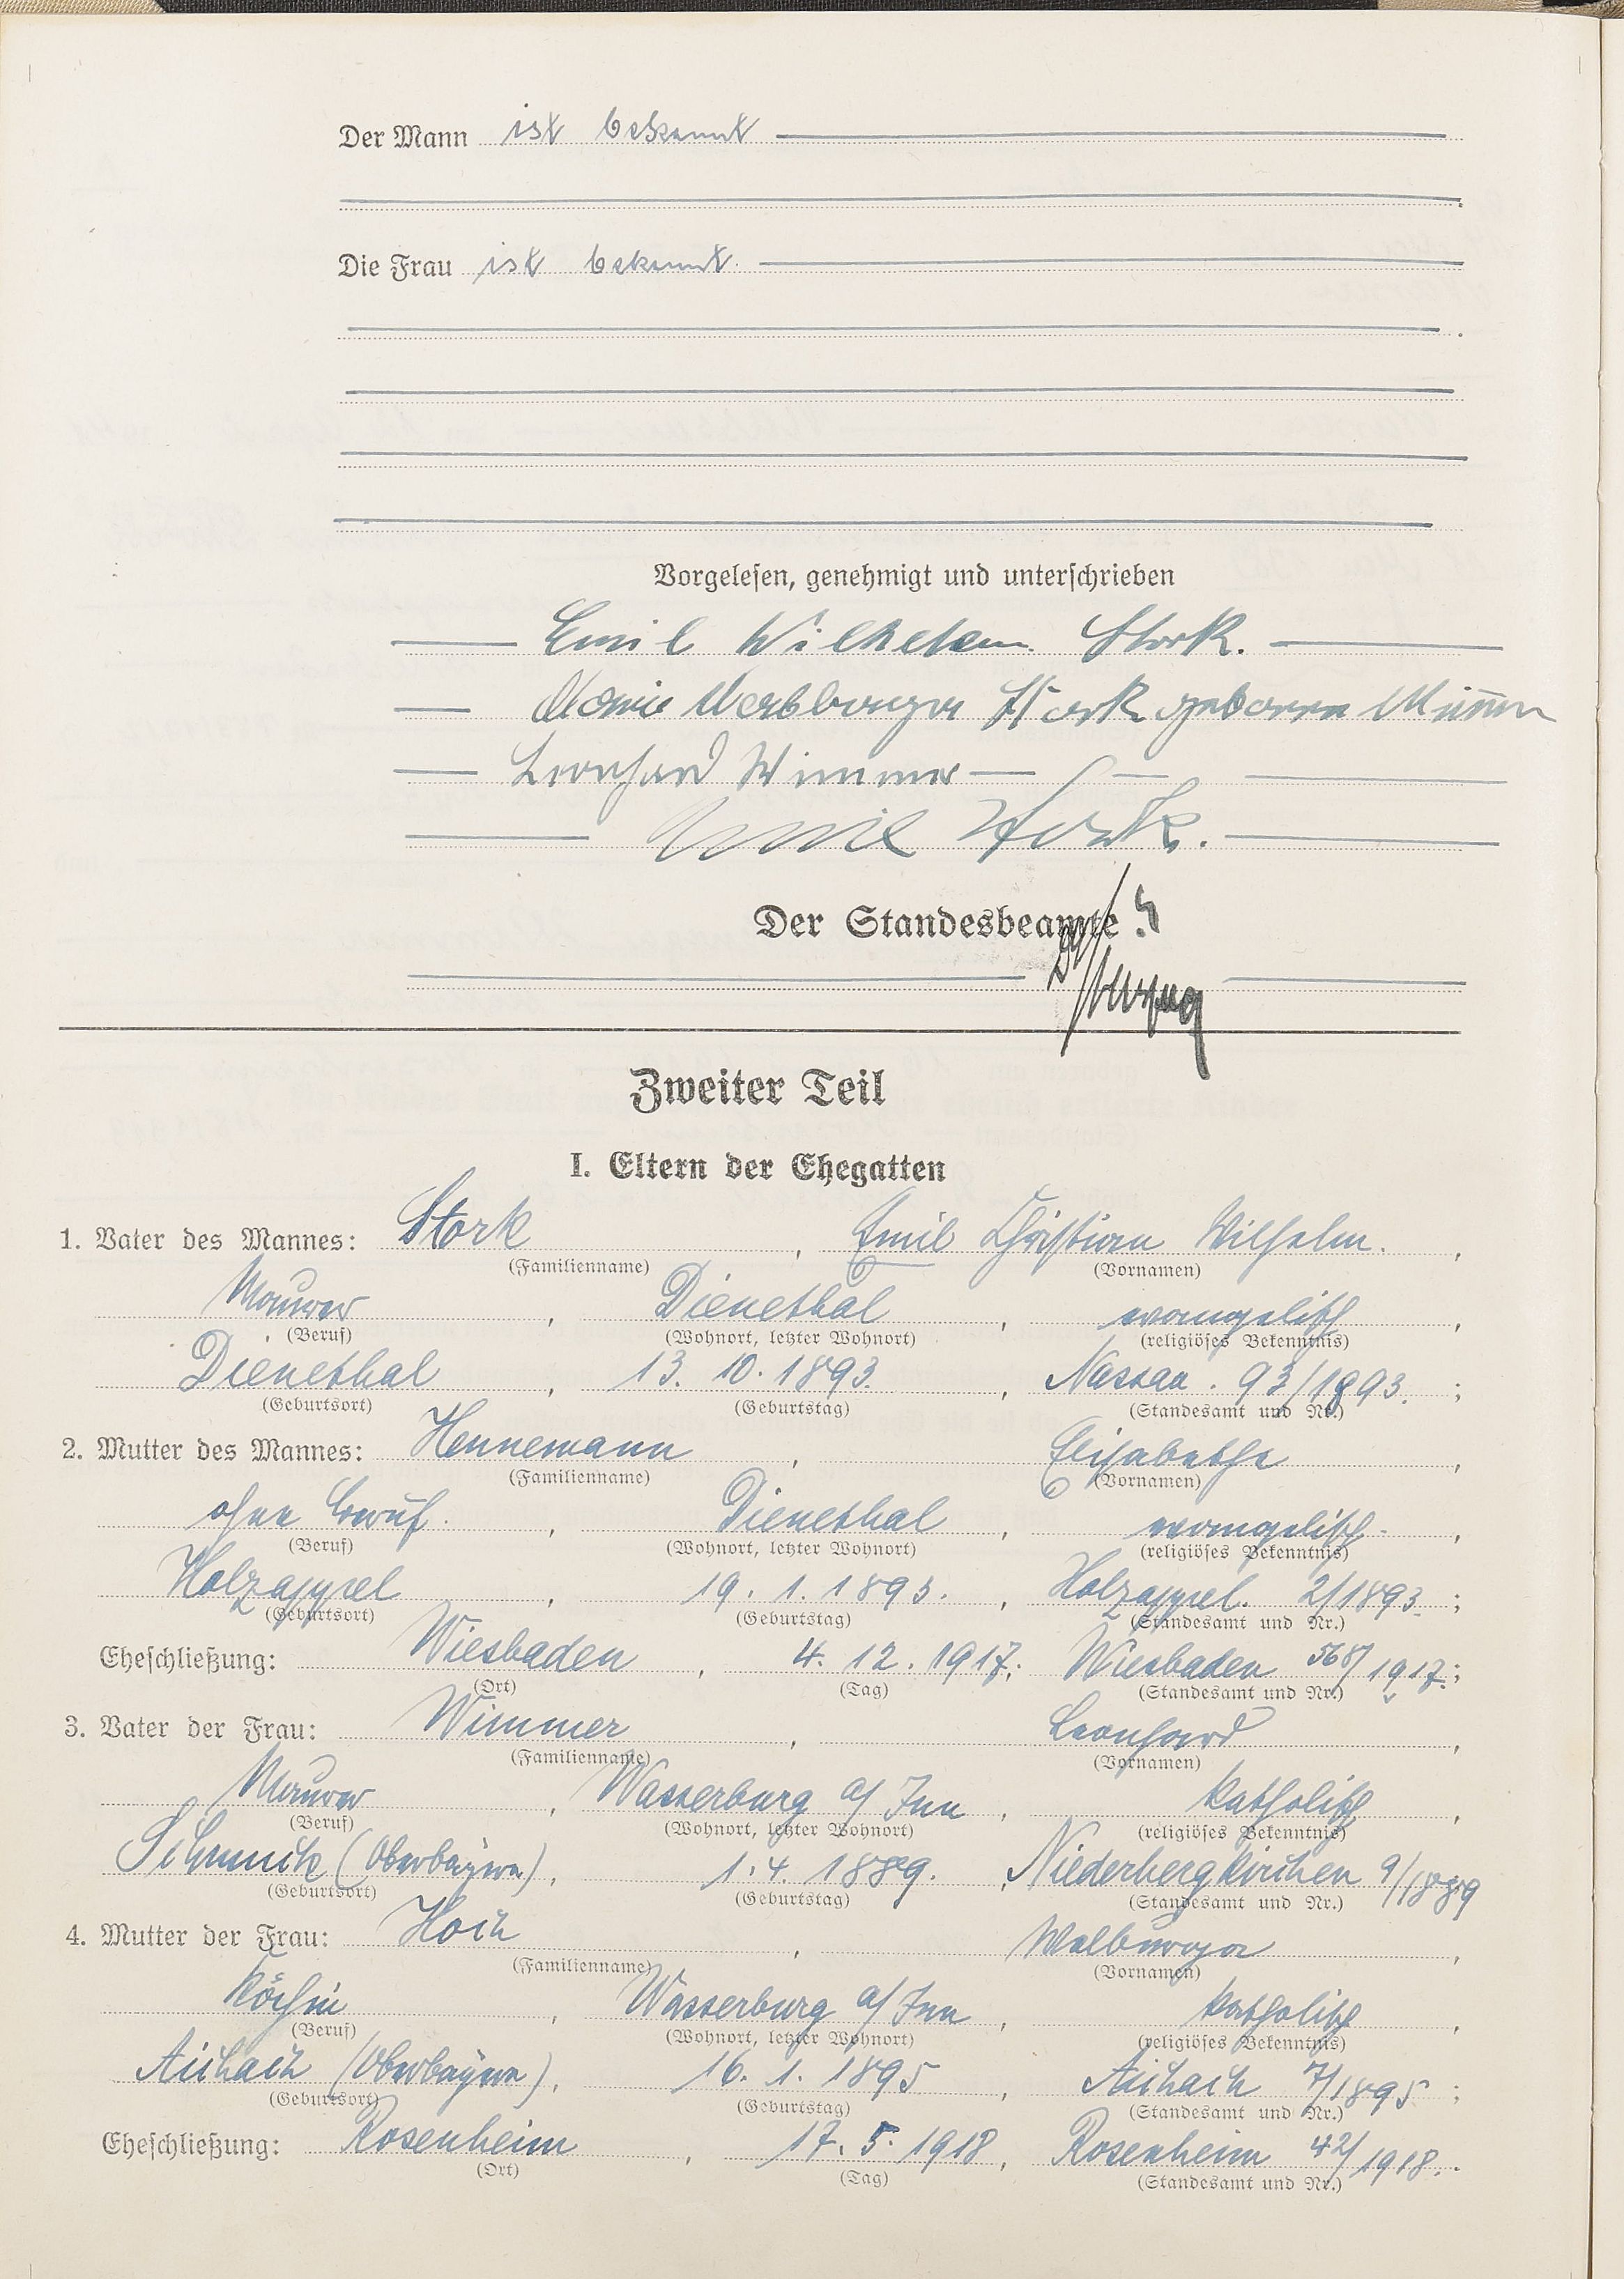 Der Mann ist bekannt
Die Frau ist bekannt
Vorgelesen, genehmigt und unterschrieben
Emil Wilhelm Stork.
Maria Walburga Stork geborene Wimmer
Leonhard Wimmer
Emil Stork.
Der Standesbeamte
Zweiter Teil
I. Eltern der Ehegatten
1. Vater des Mannes: Stork, Emil Christian Wilhelm.,
(Familienname) (Vornamen)
Maurer, Dienethal, evangelisch,
(Beruf) (Wohnort, letzter Wohnort) (religiöses Bekenntnis)
Dienethal, 13. 10. 1893., Nassau. 93/1893.;
(Geburtsort) (Geburtstag) (Standesamt und Nr.)
2. Mutter des Mannes: Hennemann, Elisabethe,
(Familienname) (Vornamen)
ohne Beruf., Dienethal, evangelisch.,
(Beruf) (Wohnort, letzter Wohnort) (religiöses Bekenntnis)
Holzappel, 19. 1. 1893., Holzappel. 2/1893.;
(Geburtsort) (Geburtstag) (Standesamt und Nr.)
Eheschließung: Wiesbaden, 4. 12. 1917.; Wiesbaden 568/1917.;
(Ort) (Tag) (Standesamt und Nr.)
3. Vater der Frau: Wimmer, Leonhard,
(Familienname) (Vornamen)
Maurer, Wasserburg a/ Inn, katholisch,
(Beruf) (Wohnort, letzter Wohnort) (religiöses Bekenntnis)
(Oberbayern), 1. 4. 1889., Niederbergkirchen 9/1889
(Geburtsort) (Geburtstag) (Standesamt und Nr.)
4. Mutter der Frau: Hoch, Walburga,
(Familienname) (Vornamen)
Köchin, Wasserburg a/ Inn, katholisch,
(Beruf) (Wohnort, letzter Wohnort) (religiöses Bekenntnis)
Aichach (Oberbayern), 16. 1. 1895, Aichach 7/1895;
(Geburtsort) (Geburtstag) (Standesamt und Nr.)
Eheschließung: Rosenheim, 17. 5. 1918, Rosenheim 42/1918.
(Ort) (Tag) (Standesamt und Nr.)